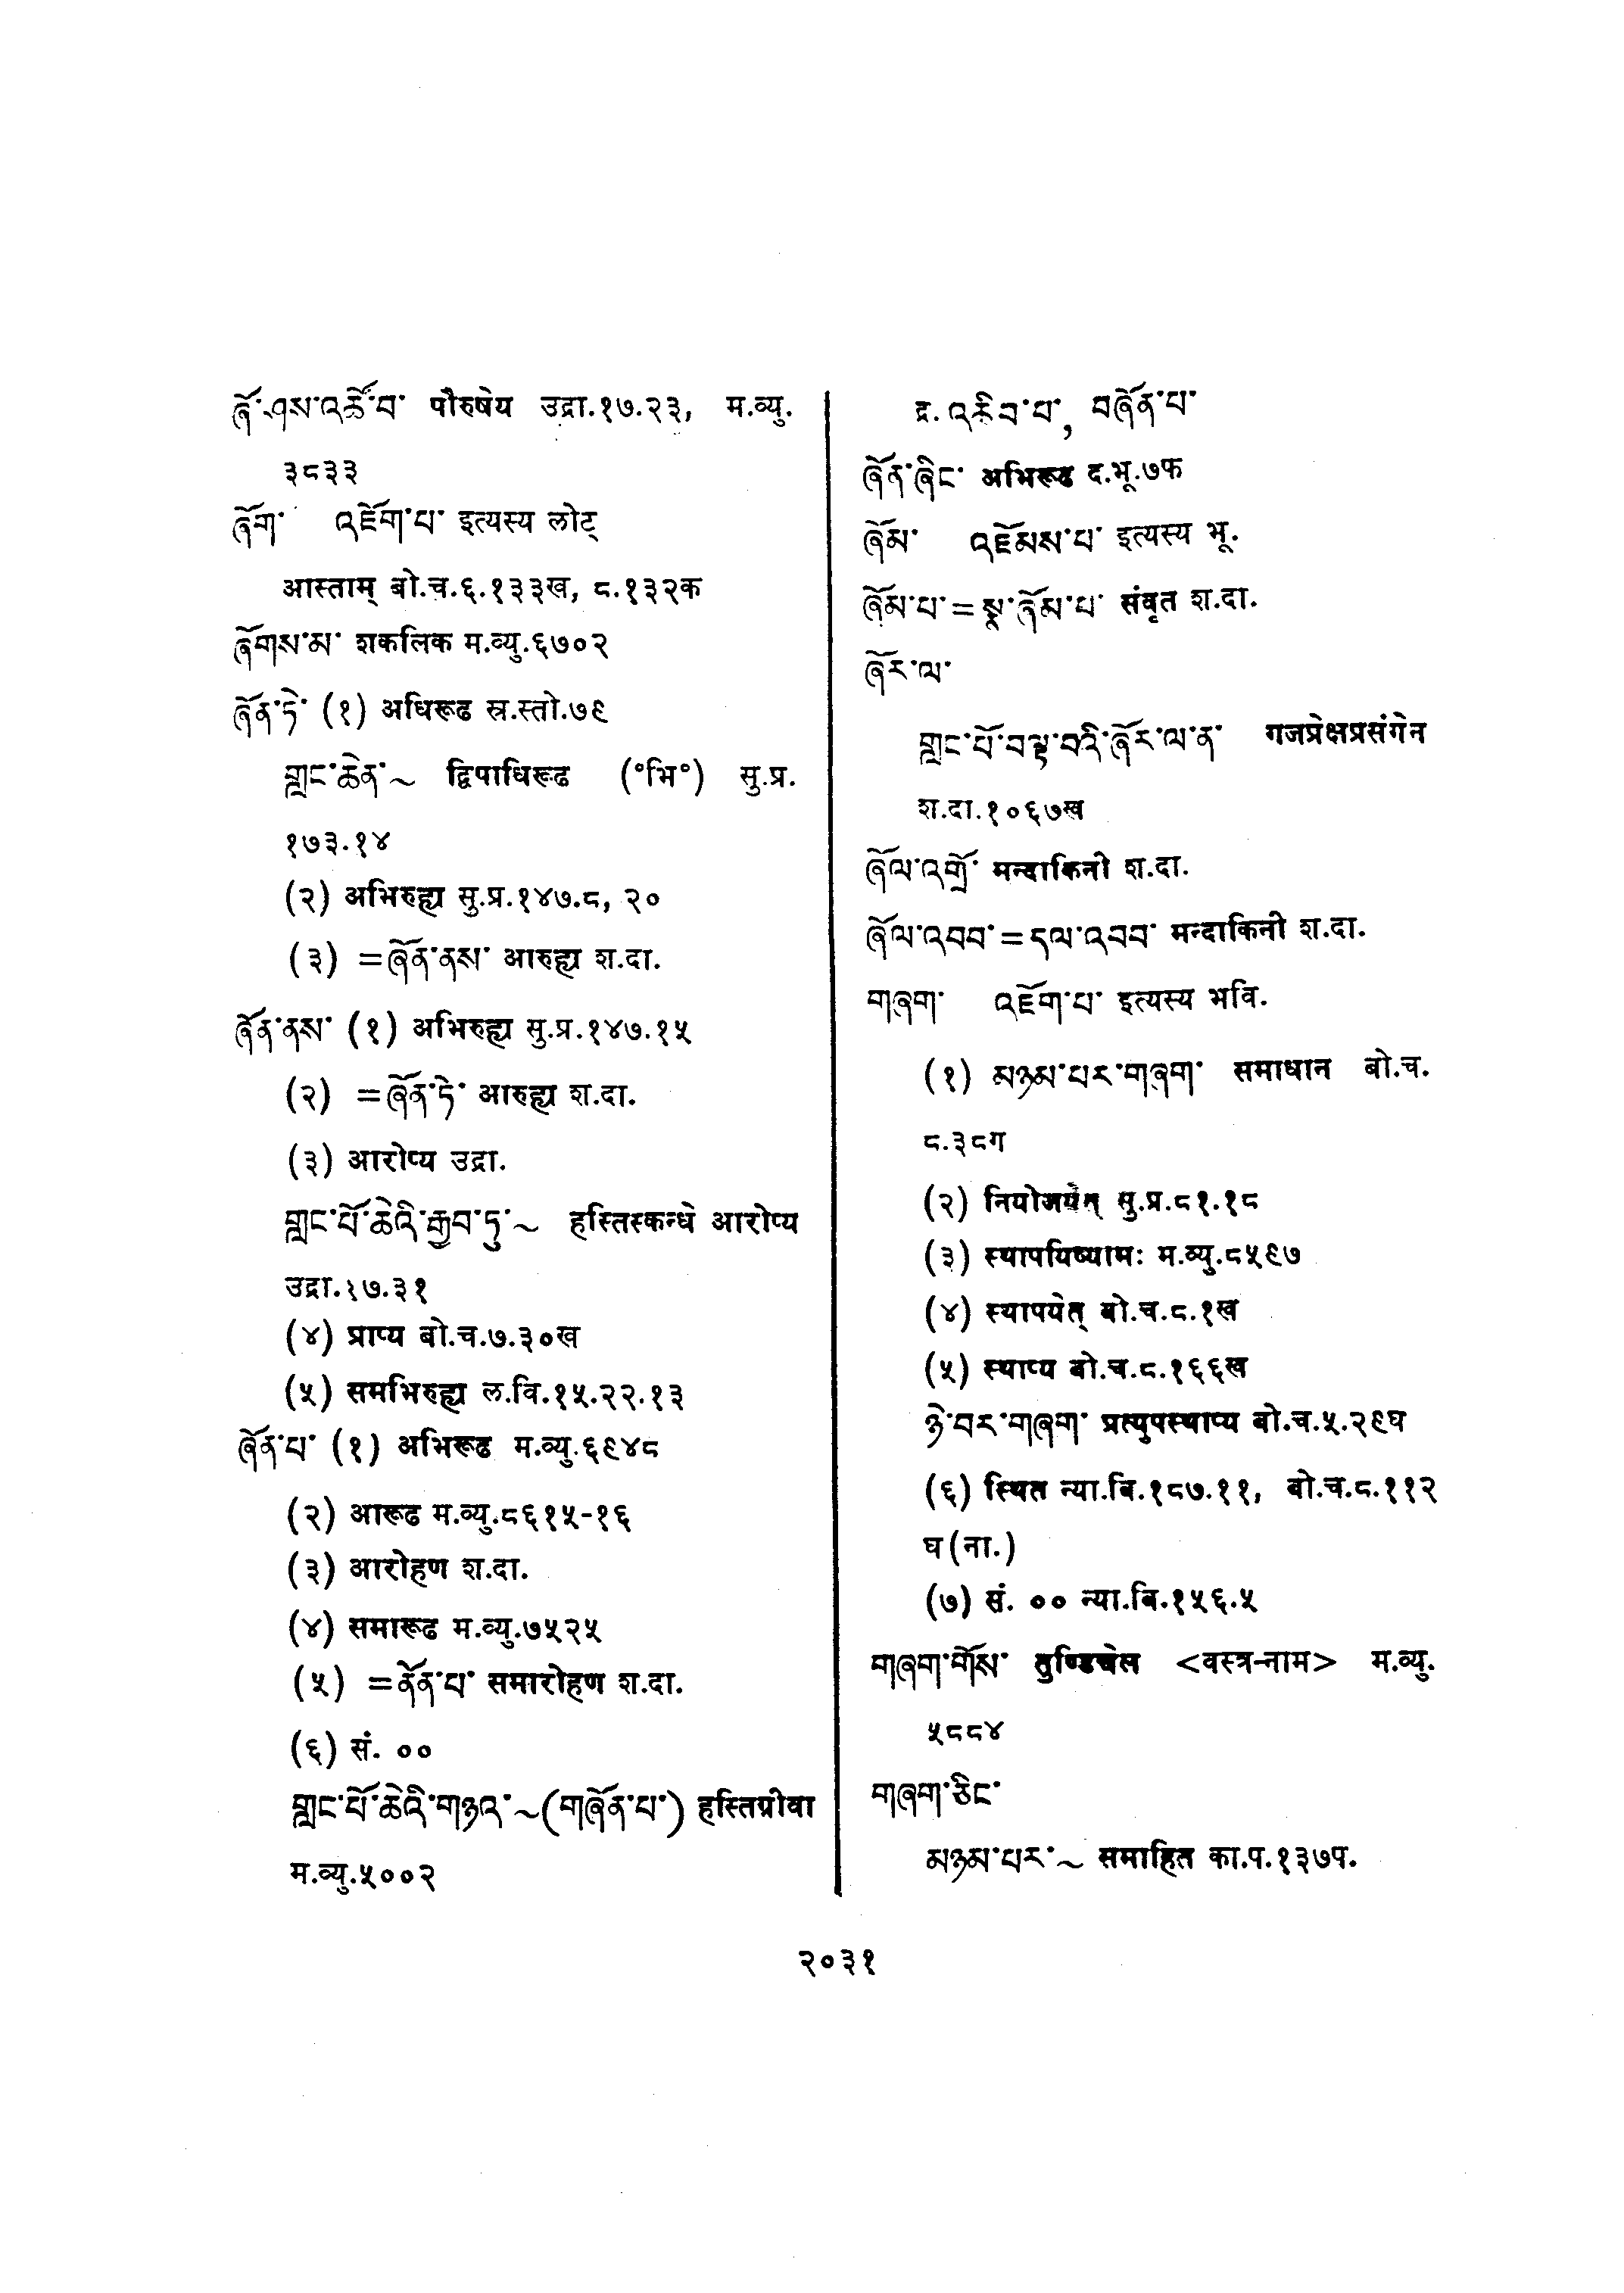 ཞོ་ཤས་འཚོ་བ་ पौरुषेय उद्रा.१७.२३, म.व्यु.
३८३३
ཞོག་ འཇོག་པ་ इत्यस्य लोट्
आस्ताम् बो.च.६.१३३ख, ८.१३२क
ཞོགས་མ་ शकलिक म.व्यु.६७०२
ཞོན་ཏེ་ (१) अधिरूढ स्र.स्तो.७९
གླང་ཆེན་~ द्विपाधिरूढ (°भि°) सु.प्र.
१७३.१४
(२) अभिरुह्य सु.प्र.१४७.८, २०
(३) =ཞོན་ནས་ आरुह्य श.दा.
ཞོན་ནས་ (१) अभिरुह्य सु.प्र.१४७.१५
(२) =ཞོན་ཏེ་ आरुह्य श.दा.
(३) आरोप्य उद्रा.
གླང་པོ་ཆེའི་རྒྱབ་ཏུ་~ हस्तिस्कन्धे आरोप्य
उद्रा.१७.३१
(४) प्राप्य बो.च.७.३०ख
(५) समभिरुह्य ल.वि.१५.२२.१३
ཞོན་པ་ (१) अभिरूढ म.व्यु.६९४८
(२) आरूढ म.व्यु.८६१५-१६
(३) आरोहण श.दा.
(४) समारूढ म.व्यु.७५२५
(५) =ནོན་པ་ समारोहण श.दा.
(६) सं. ००
གླང་པོ་ཆེའི་གཉའ་~(གཞོན་པ་) हस्तिग्रीवा
म.व्यु.५००२
द्र. འདྲིབ་པ་, བཞོན་པ་
ཞོན་ཞིང་ अभिरूढ द.भू.७फ
ཞོམ་ འཇོམས་པ་ इत्यस्य भू.
ཞོམ་པ་=སྣ་ཞོམ་པ་ संवृत श.दा.
ཞོར་ལ་
གླང་པོ་བལྟ་བའི་ཞོར་ལ་ན་ गजप्रेक्षप्रसंगेन
श.दा.१०६७ख
ཞོལ་འགྲོ་ मन्दाकिनी श.दा.
ཞོལ་འབབ་=དལ་འབབ་ मन्दाकिनी श.दा.
གཞག་ འཇོག་པ་ इत्यस्य भवि.
(१) མཉམ་པར་གཞག་ समाधान बो.च.
८.३८ग
(२) नियोजयेत् सु.प्र.८१.१८
(३) स्थापयिष्यामः म.व्यु.८५९७
(४) स्थापयेत् बो.च.८.१ख
(५) स्थाप्य बो.च.८.१६६ख
ཉེ་བར་གཞག་ प्रत्युपस्थाप्य बो.च.५.२९घ
(६) स्थित न्या.बि.१८७.११, बो.च.८.११२
घ(ना.)
(७) सं. ०० न्या.बि.१५६.५
གཞག་གོས་ तुण्डिचेल <वस्त्र-नाम> म.व्यु.
५८८४
གཞག་ཅིང་
མཉམ་པར་~ समाहित का.प.१३७प.
२०३१